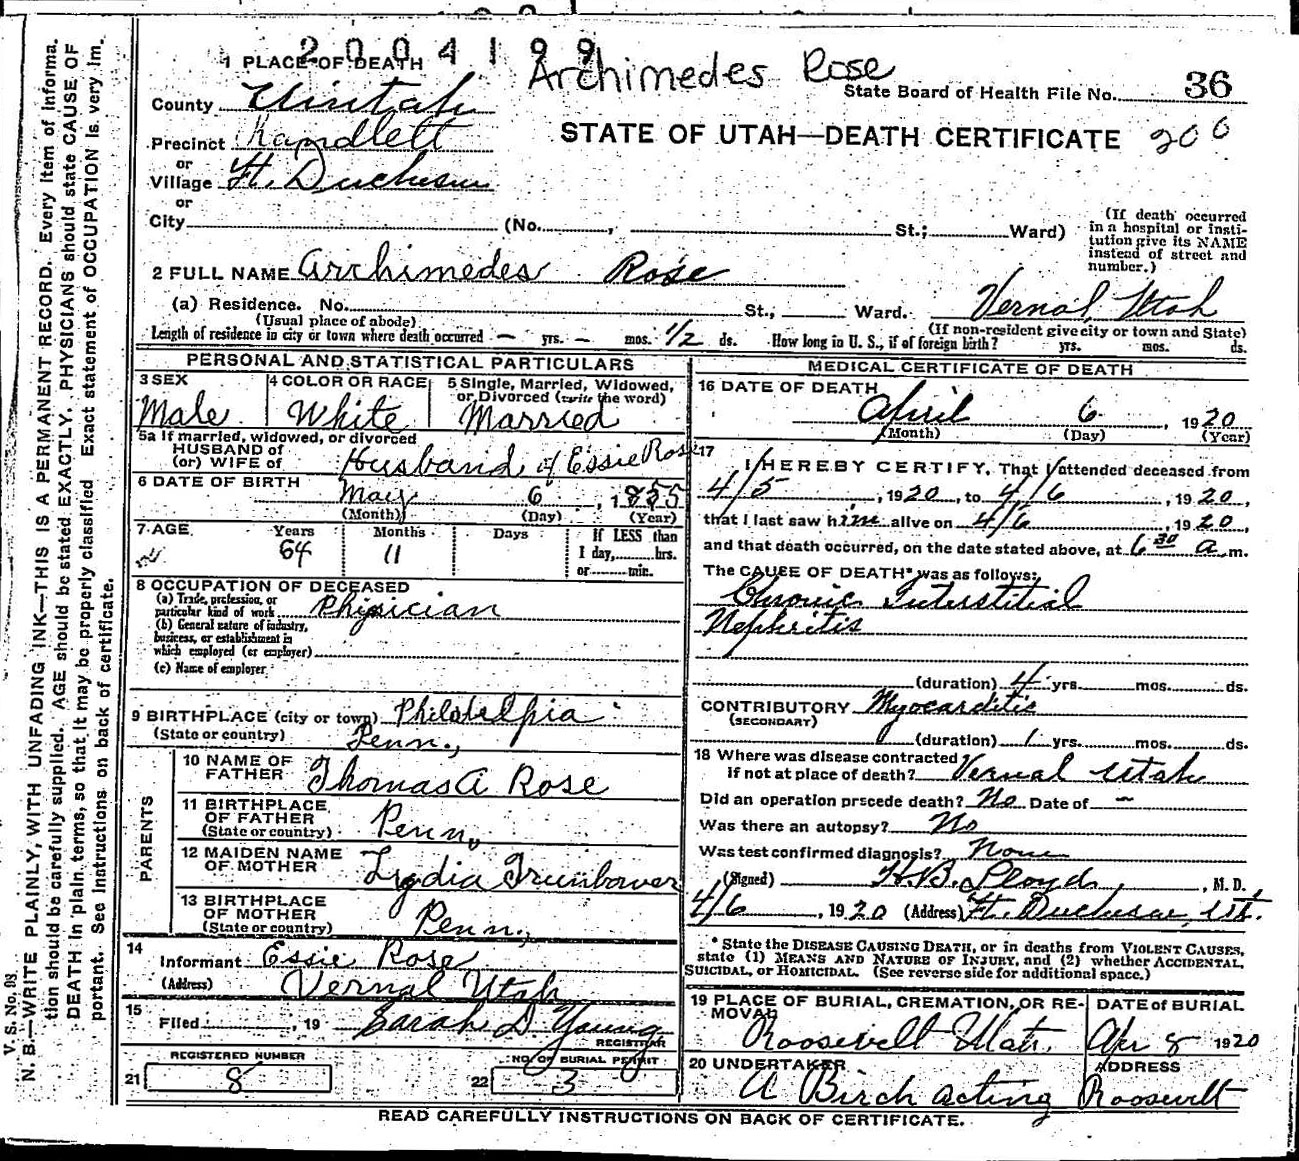 2004199
Archimedes Rose
1 PLACE OF DEATH
State Board of Health File No. 36
County Uintah
STATE OF UTAH—DEATH CERTIFICATE 206
Precinct Randlett
or
Village Ft. Duchesne
or
City (No. , St.; Ward)
(If death occurred
in a hospital or insti-
tution give its NAME
instead of street and
number.)
2 FULL NAME Archimedes Rose
(a) Residence. No. St., Ward. Vernal Utah
(Usual place of abode) (If non-resident give city or town and State)
Length of residence in city or town where death occurred — yrs. — mos. 1/2 ds. How long in U. S., if of foreign birth? yrs. mos. ds.
PERSONAL AND STATISTICAL PARTICULARS
3 SEX
Male
4 COLOR OR RACE
White
5 Single, Married, Widowed,
or Divorced (write the word)
Married
5a If married, widowed, or divorced
HUSBAND of
(or) WIFE of Husband of Essie Rose
6 DATE OF BIRTH
May 6, 1855
(Month) (Day) (Year)
7 AGE Years Months Days If LESS than
64 11 1 day, hrs.
or min.
8 OCCUPATION OF DECEASED
(a) Trade, profession, or
particular kind of work Physician
(b) General nature of industry,
business, or establishment in
which employed (or employer)
(c) Name of employer
9 BIRTHPLACE (city or town) Philadelphia
(State or country) Penn.,
PARENTS
10 NAME OF
FATHER Thomas A Rose
11 BIRTHPLACE
OF FATHER
(State or country) Penn,
12 MAIDEN NAME
OF MOTHER Lydia Trumbower
13 BIRTHPLACE
OF MOTHER
(State or country) Penn.,
14
Informant Essie Rose
(Address) Vernal Utah
15
Filed , 19 Sarah D Young
REGISTRAR
REGISTERED NUMBER
21 8
NO. OF BURIAL PERMIT
22 3
MEDICAL CERTIFICATE OF DEATH
16 DATE OF DEATH
April 6, 1920
(Month) (Day) (Year)
17
I HEREBY CERTIFY, That I attended deceased from
4/5, 1920, to 4/6, 1920,
that I last saw him alive on 4/6, 1920,
and that death occurred, on the date stated above, at 6 30 a m.
The CAUSE OF DEATH* was as follows:
Chronic Interstitial
Nephritis
(duration) 4 yrs. mos. ds.
CONTRIBUTORY Myocarditis
(SECONDARY)
(duration) 1 yrs. mos. ds.
18 Where was disease contracted
if not at place of death? Vernal Utah
Did an operation precede death? No Date of —
Was there an autopsy? No
What test confirmed diagnosis? None
(Signed) H.B. Lloyd, M. D.
4/6, 1920 (Address) Ft. Duchesne, Ut.
* State the DISEASE CAUSING DEATH, or in deaths from VIOLENT CAUSES,
state (1) MEANS AND NATURE OF INJURY, and (2) whether ACCIDENTAL,
SUICIDAL, or HOMICIDAL. (See reverse side for additional space.)
19 PLACE OF BURIAL, CREMATION, OR RE-
MOVAL
Roosevelt Utah.
DATE of BURIAL
Apr 8 1920
20 UNDERTAKER
A Birch acting
ADDRESS
Roosevelt
READ CAREFULLY INSTRUCTIONS ON BACK OF CERTIFICATE.
V. S. No. 98
N. B.—WRITE PLAINLY, WITH UNFADING INK—THIS IS A PERMANENT RECORD. Every item of informa-
tion should be carefully supplied. AGE should be stated EXACTLY. PHYSICIANS should state CAUSE OF
DEATH in plain terms, so that it may be properly classified. Exact statement of OCCUPATION is very im-
portant. See instructions on back of certificate.